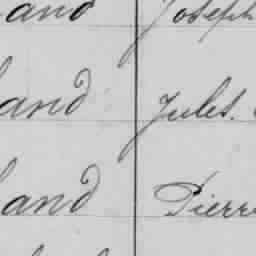 and Joseph
and Jules.
and Pierre